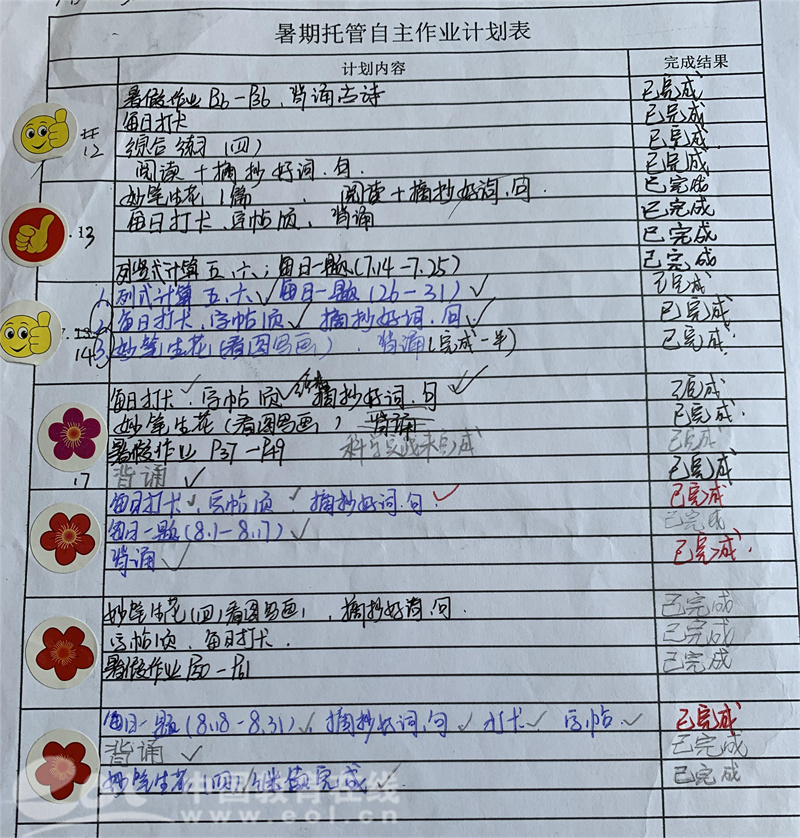 暑期托管自主作业计划表
计划内容 完成结果
暑假作业 P26-P36，背诵古诗 已完成
每日打卡 已完成
12 综合练习（四） 已完成
阅读+摘抄好词.句. 已完成
妙笔生花1篇 、 阅读+摘抄好词.句. 已完成
13 每日打卡.字帖1页、背诵 已完成
已完成
列竖式计算五.六；每日一题(7.14-7.25) 已完成
1.列式计算五.六✓ 每日一题(26-31)✓ 已完成
2.每日打卡、字帖1页✓ 摘抄好词.句✓ 已完成
14 3.妙笔生花(看图写画)．背诵(完成一半) 已完成
每日打卡✓.字帖1页✓ 摘抄好词.句✓ 已完成
妙笔生花(看图写画) 背诵 已完成
暑假作业 P37-P49 未完成 已完成
17 背诵 ✓ 已完成
每日打卡✓.字帖1页 ✓摘抄好词.句.✓ 已完成
每日一题(8.1-8.17)✓ 已完成
背诵 ✓ 已完成.
妙笔生花(四)看图写画），摘抄好词.句. 已完成
字帖1页、每日打卡. 已完成
暑假作业 已完成
每日一题(8.18-8.31)✓摘抄好词.句✓打卡✓字帖✓ 已完成
背诵 ✓ 已完成
妙笔生花(四) 完成✓ 已完成
中国教育在线
www.eol.cn